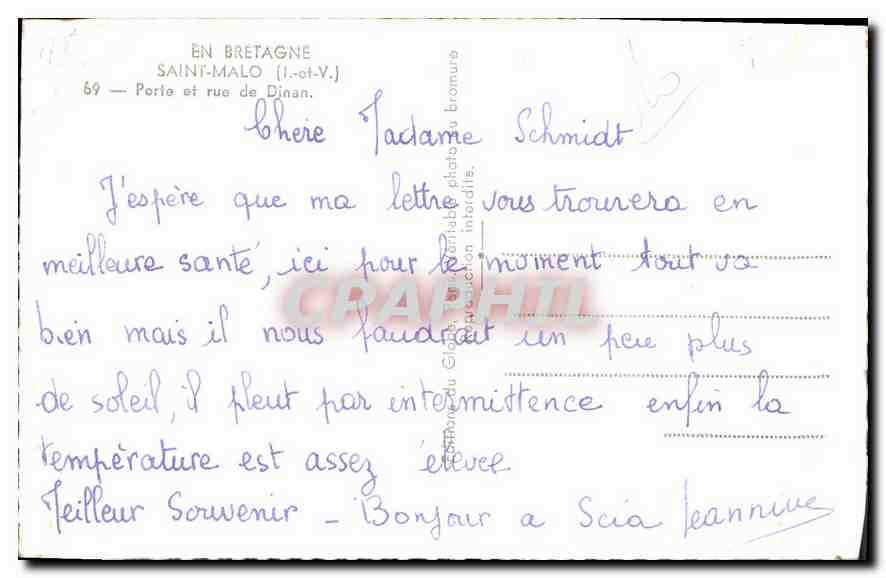 EN BRETAGNE
SAINT-MALO (I.-et-V.)
69 — Porte et rue de Dinan.
Chere Madame Schmidt
J'espère que ma lettre vous trouvera en
meilleure santé, ici pour le moment tout va
bien mais il nous faudrait un peu plus
de soleil, il pleut par intermittence enfin la
température est assez élevée
Meilleur Souvenir - Bonjour a Scia Jeannine
Editions du Globe, véritable photo au bromure
Reproduction interdite.
CPAPHIL